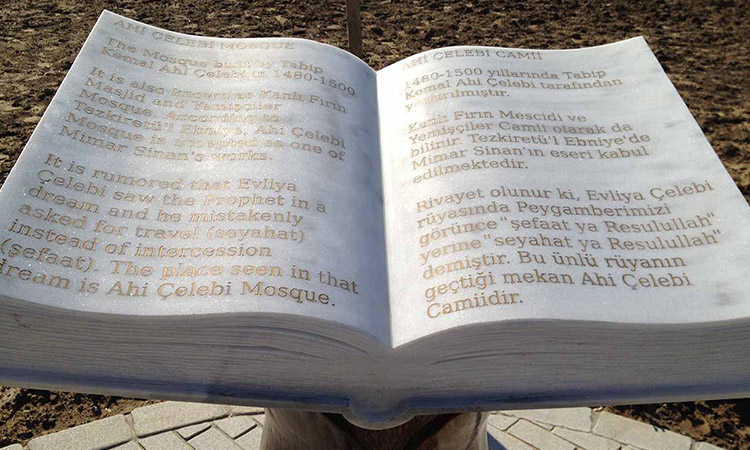 AHİ ÇELEBİ MOSQUE
The Mosque built by Tabip
Kemal Ahi Çelebi in 1480-1500
It is also known as Kanlı Fırın
Masjid and Yemişçiler
Mosque. According to
Tezkiretü'l Ebniye, Ahi Çelebi
Mosque is accepted as one of
Mimar Sinan's works.
It is rumored that Evliya
Çelebi saw the Prophet in a
dream and he mistakenly
asked for travel (seyahat)
instead of intercession
(şefaat). The place seen in that
dream is Ahi Çelebi Mosque.
AHİ ÇELEBİ CAMİİ
1480-1500 yıllarında Tabip
Kemal Ahi Çelebi tarafından
yaptırılmıştır.
Kanlı Fırın Mescidi ve
Yemişçiler Camii olarak da
bilinir. Tezkiretü'l Ebniye'de
Mimar Sinan'ın eseri kabul
edilmektedir.
Rivayet olunur ki, Evliya Çelebi
rüyasında Peygamberimizi
görünce "şefaat ya Resulullah"
yerine "seyahat ya Resulullah"
demiştir. Bu ünlü rüyanın
geçtiği mekan Ahi Çelebi
Camiidir.